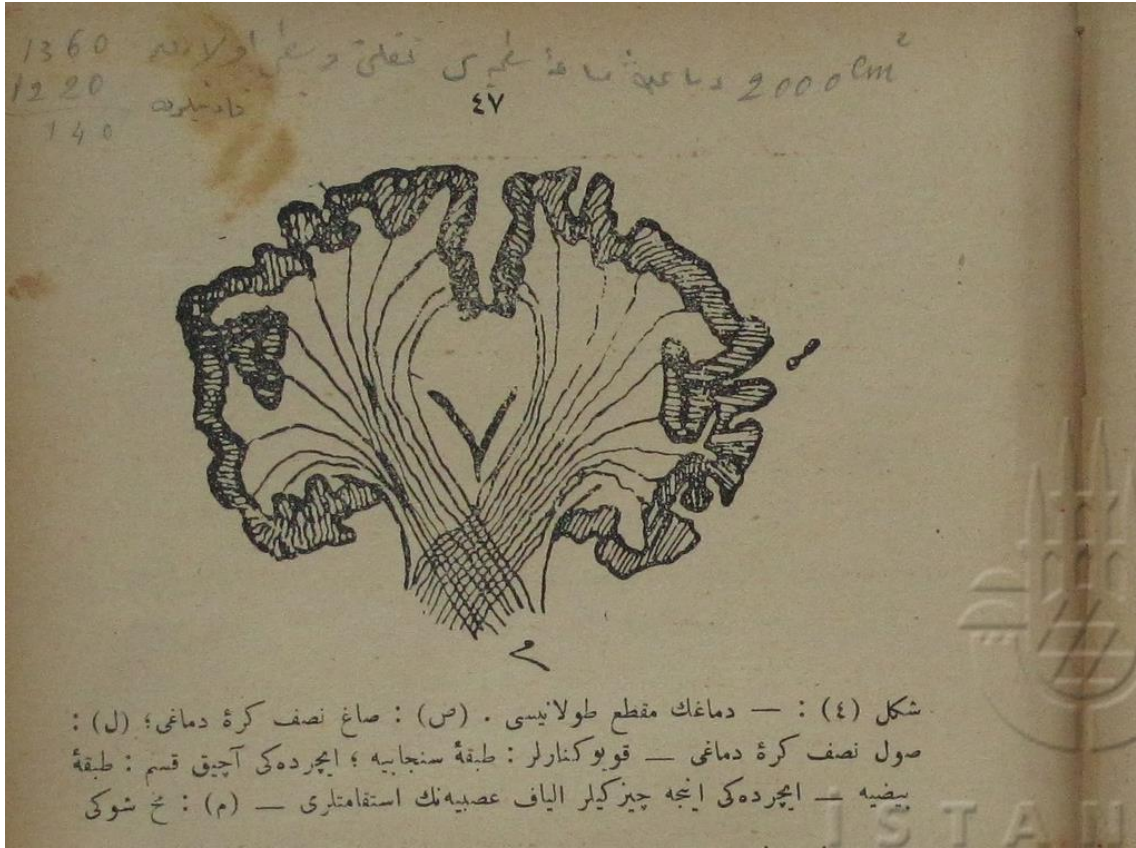 1360
1220
140
2000 cm²
٤٧
م
شكل (٤) : — دماغك مقطع طولانیسی . (ص) : صاغ نصف كرۀ دماغی؛ (ل) :
صول نصف كرۀ دماغی — قویو كنارلر : طبقۀ سنجابیه ؛ ایچرده‌كی آچیق قسم : طبقۀ
بیضیه — ایچرده‌كی اینجه چیزكیلر الیاف عصبیه‌نك استقامتلری — (م) : مخ شوكی
ISTAN